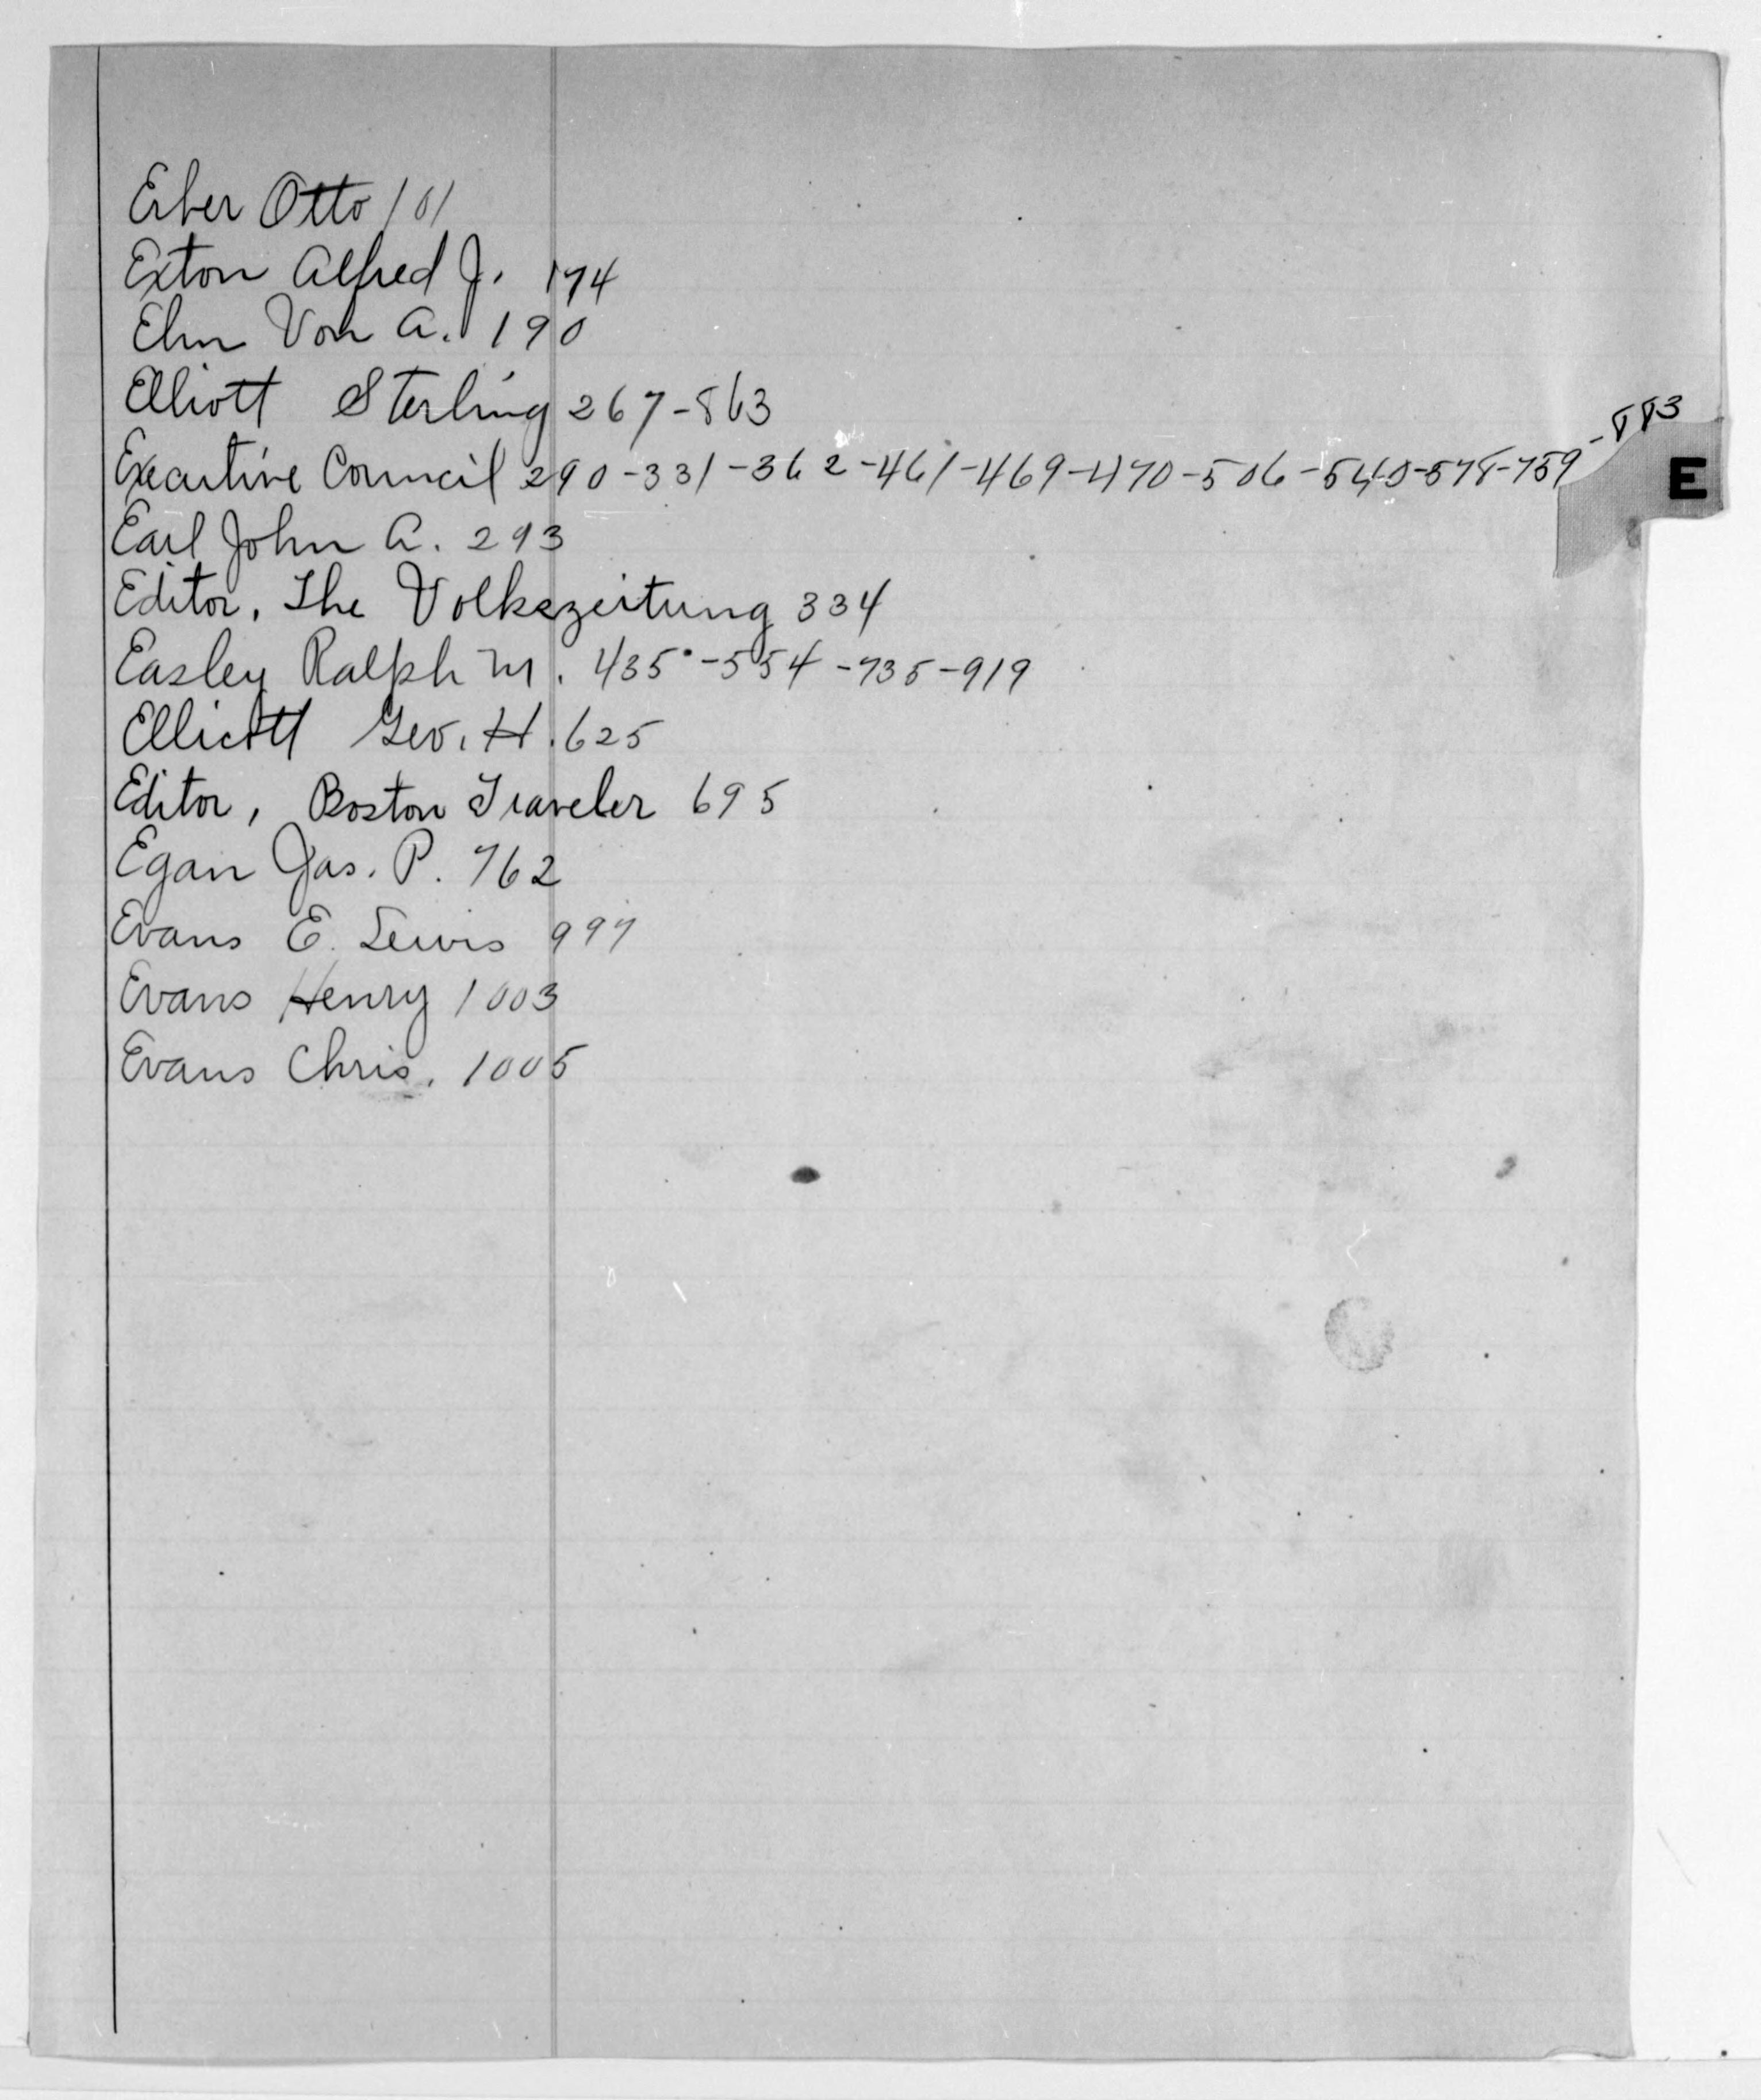 Erber Otto 101
Exton Alfred J. 174
Elm Von A. 190
Elliott Sterling 267-863
Executive Council 290-331-362-461-469-470-506-540-578-759-883
E
Earl John A. 293
Editor, The Volkszeitung 334
Easley Ralph M. 435-554-735-919
Ellicott Geo. H. 625
Editor, Boston Traveler 695
Egan Jas. P. 762
Evans E. Lewis 997
Evans Henry 1003
Evans Chris. 1005